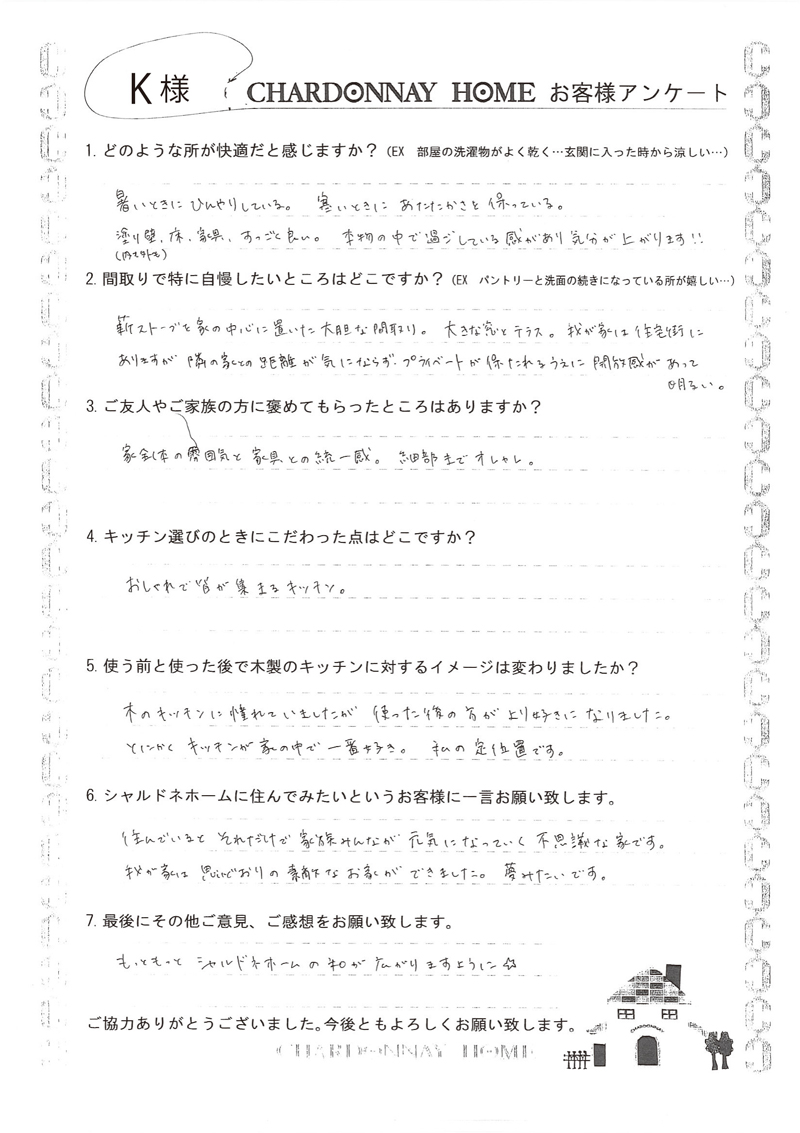 K様
CHARDONNAY HOME お客様アンケート
1. どのような所が快適だと感じますか？（EX　部屋の洗濯物がよく乾く…玄関に入った時から涼しい…）
暑いときに ひんやりしている。　寒いときに あたたかさを 保っている。
塗り壁、床、家具、すっごく良い。　本物の中で過ごしている感があり気分が上がります!!
(内も外も)
2. 間取りで特に自慢したいところはどこですか？（EX　パントリーと洗面の続きになっている所が嬉しい…）
薪ストーブを家の中心に置いた大胆な間取り。　大きな窓とテラス。　我が家は住宅街に
ありますが 隣の家との距離が気にならず、プライベートが保たれるうえに 開放感があって
明るい。
3. ご友人やご家族の方に褒めてもらったところはありますか？
家全体の雰囲気と 家具との統一感。　細部までオシャレ。
4. キッチン選びのときにこだわった点はどこですか？
おしゃれで皆が集まるキッチン。
5. 使う前と使った後で木製のキッチンに対するイメージは変わりましたか？
木のキッチンに憧れていましたが 使った後の方がより好きになりました。
とにかく キッチンが家の中で一番好き。　私の定位置です。
6. シャルドネホームに住んでみたいというお客様に一言お願い致します。
住んでいると それだけで家族みんなが 元気になっていく 不思議な家です。
我が家は 思いどおりの素敵なお家ができました。　夢みたいです。
7. 最後にその他ご意見、ご感想をお願い致します。
もっともっと シャルドネホームの和が広がりますように☆
ご協力ありがとうございました。今後ともよろしくお願い致します。
CHARDONNAY
CHARDONNAY HOME